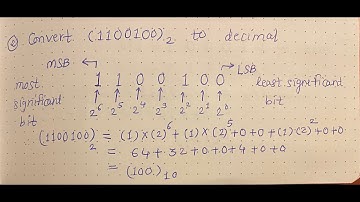 ② Convert (1100100)₂ to decimal
MSB ← → LSB
most significant bit 1 1 0 0 1 0 0 least significant bit
↑ ↑ ↑ ↑ ↑ ↑ ↑
2⁶ 2⁵ 2⁴ 2³ 2² 2¹ 2⁰
(1100100)₂ = (1) × (2)⁶ + (1) × (2)⁵ + 0 + 0 + (1)(2)² + 0 + 0
= 64 + 32 + 0 + 0 + 4 + 0 + 0
= (100)₁₀